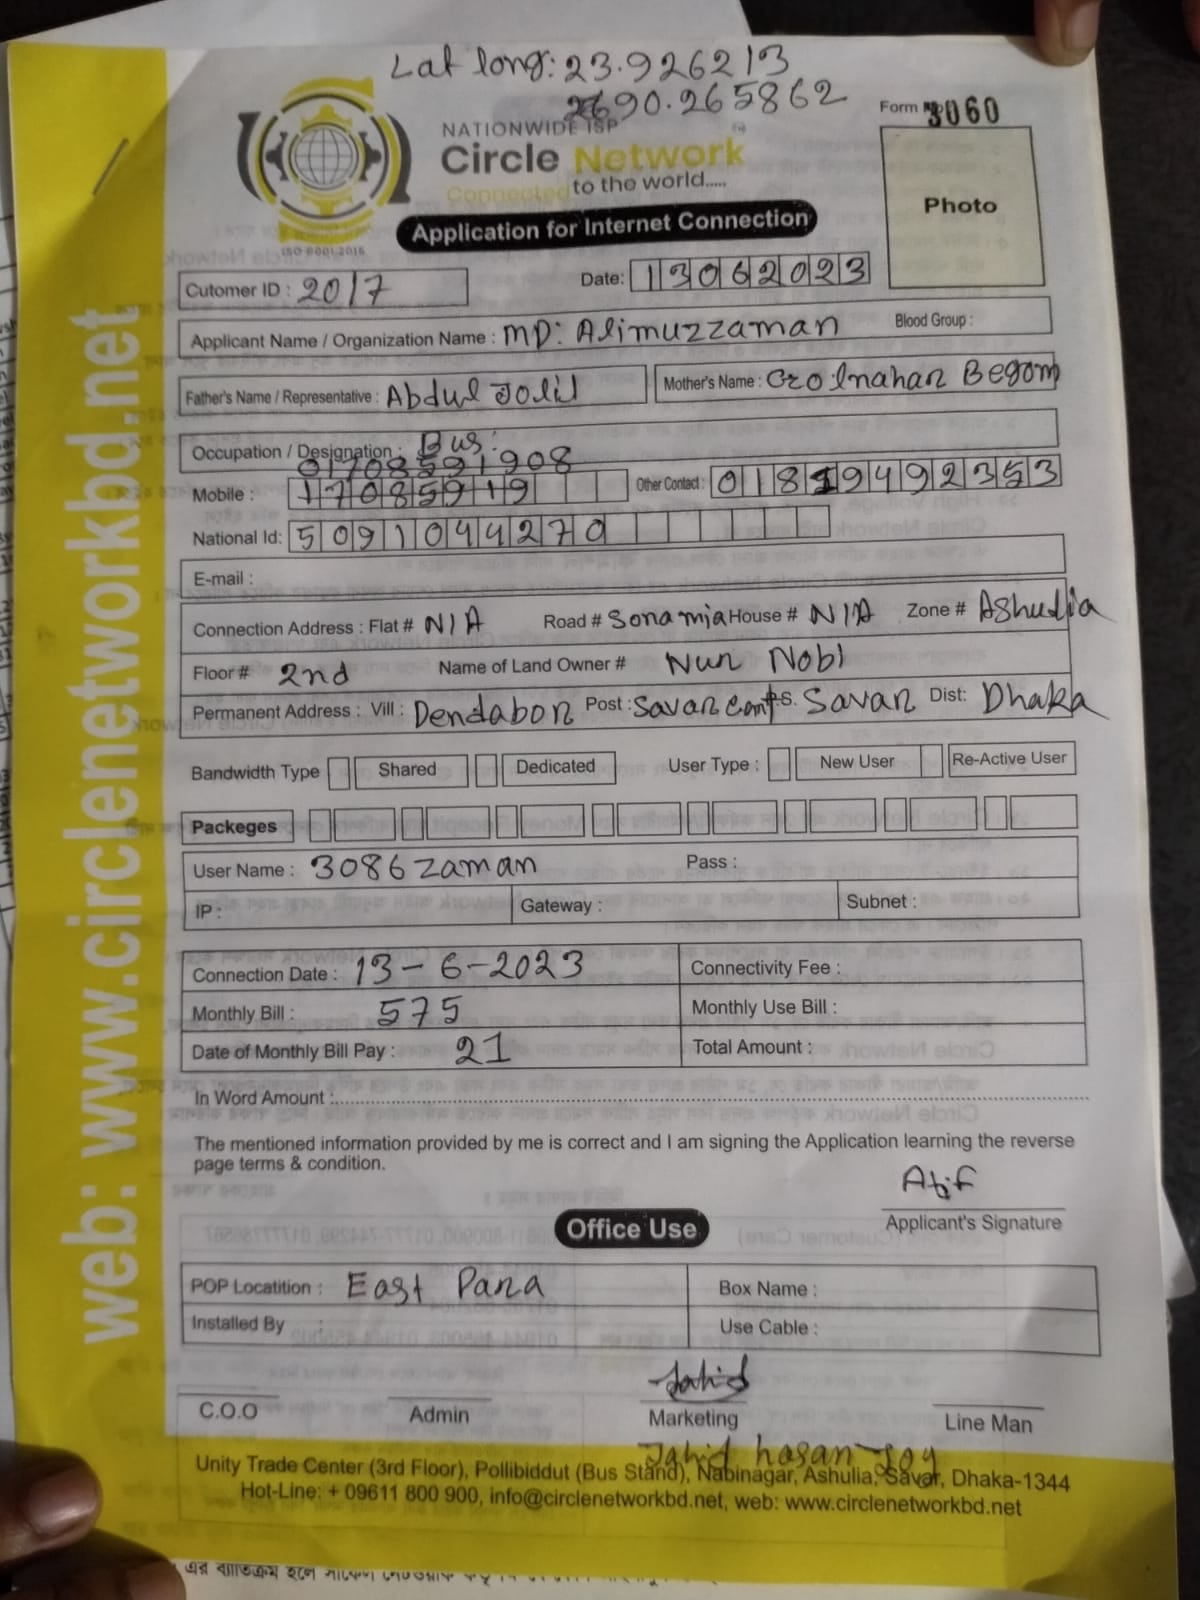 Lat long: 23.926213
90.265862
Form No 3060
NATIONWIDE ISP
Circle Network
Connected to the world.....
Application for Internet Connection
Photo
ISO 9001:2015
Cutomer ID : 2017
Date: 13062023
Applicant Name / Organization Name : MD: Alimuzzaman Blood Group :
Father's Name / Representative : Abdul Jolil Mother's Name : Golnahar Begom
Occupation / Designation : Bus:
01708591908
Mobile : 17085919 Other Contact : 01819492353
National Id: 5091044270
E-mail :
Connection Address : Flat # N/A Road # Sona mia House # N/A Zone # Ashulia
Floor # 2nd Name of Land Owner # Nur Nobi
Permanent Address : Vill : Dendabor Post : Savar Cant P.S. Savar Dist: Dhaka
Bandwidth Type Shared Dedicated User Type : New User Re-Active User
Packeges
User Name : 3086zaman Pass :
IP : Gateway : Subnet :
Connection Date : 13-6-2023 Connectivity Fee :
Monthly Bill : 575 Monthly Use Bill :
Date of Monthly Bill Pay : 21 Total Amount :
In Word Amount :
The mentioned information provided by me is correct and I am signing the Application learning the reverse
page terms & condition.
Atif
Applicant's Signature
Office Use
POP Locatition : East Para Box Name :
Installed By : Use Cable :
Jahid
C.O.O Admin Marketing Line Man
Jahid hasan Joy
Unity Trade Center (3rd Floor), Pollibiddut (Bus Stand), Nabinagar, Ashulia, Savar, Dhaka-1344
Hot-Line: + 09611 800 900, info@circlenetworkbd.net, web: www.circlenetworkbd.net
web: www.circlenetworkbd.net
এর ব্যাতিক্রম হলে